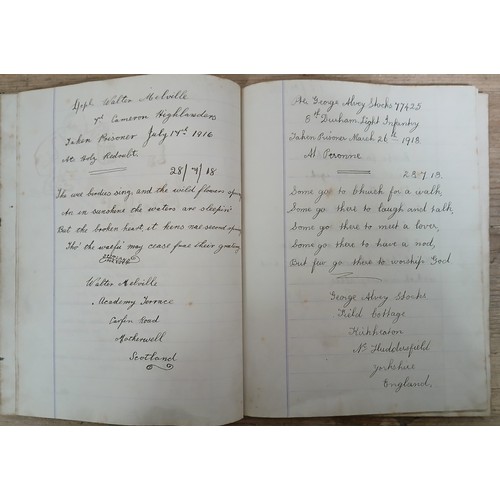 L/Cpl Walter Melville
7th Cameron Highlanders
Taken Prisoner July 17th 1916
At Redoubt
28/7/18
The wee birdies sing, and the wild flowers spring
An in sunshine the waters are sleepin'
But the broken heart, it kens nae second spring
Tho' the waefu' may cease frae their greeting
Walter Melville
Academy Terrace
Carfin Road
Motherwell
Scotland
George Alvey Stocks 77425
Durham Light Infantry
Taken Prisoner March 26th 1918.
At Peronne
28.7.18.
Some go to Church for a walk,
Some go there to laugh and talk,
Some go there to meet a lover,
Some go there to have a nod,
But few go there to worship God
George Alvey Stocks
Field Cottage
Kirkheaton
Nr Huddersfield
Yorkshire
England.